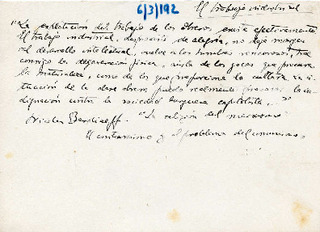 6/3/192
El trabajo industrial
"La explotación del trabajo de los obreros, existe efectivamente
El trabajo industrial, desprovisto de alegría, no deja margen
al desarrollo intelectual, vuelve a los hombres
consigo la degeneración física, aisla de los goces que procura
la naturaleza, como de los que proporciona la cultura
de la clase obrera, puede realmente la in-
dignación contra la sociedad burguesa capitalista."
Nicolas Berdiaeff. "La religión del marxismo"
El cristianismo y el problema del comunismo